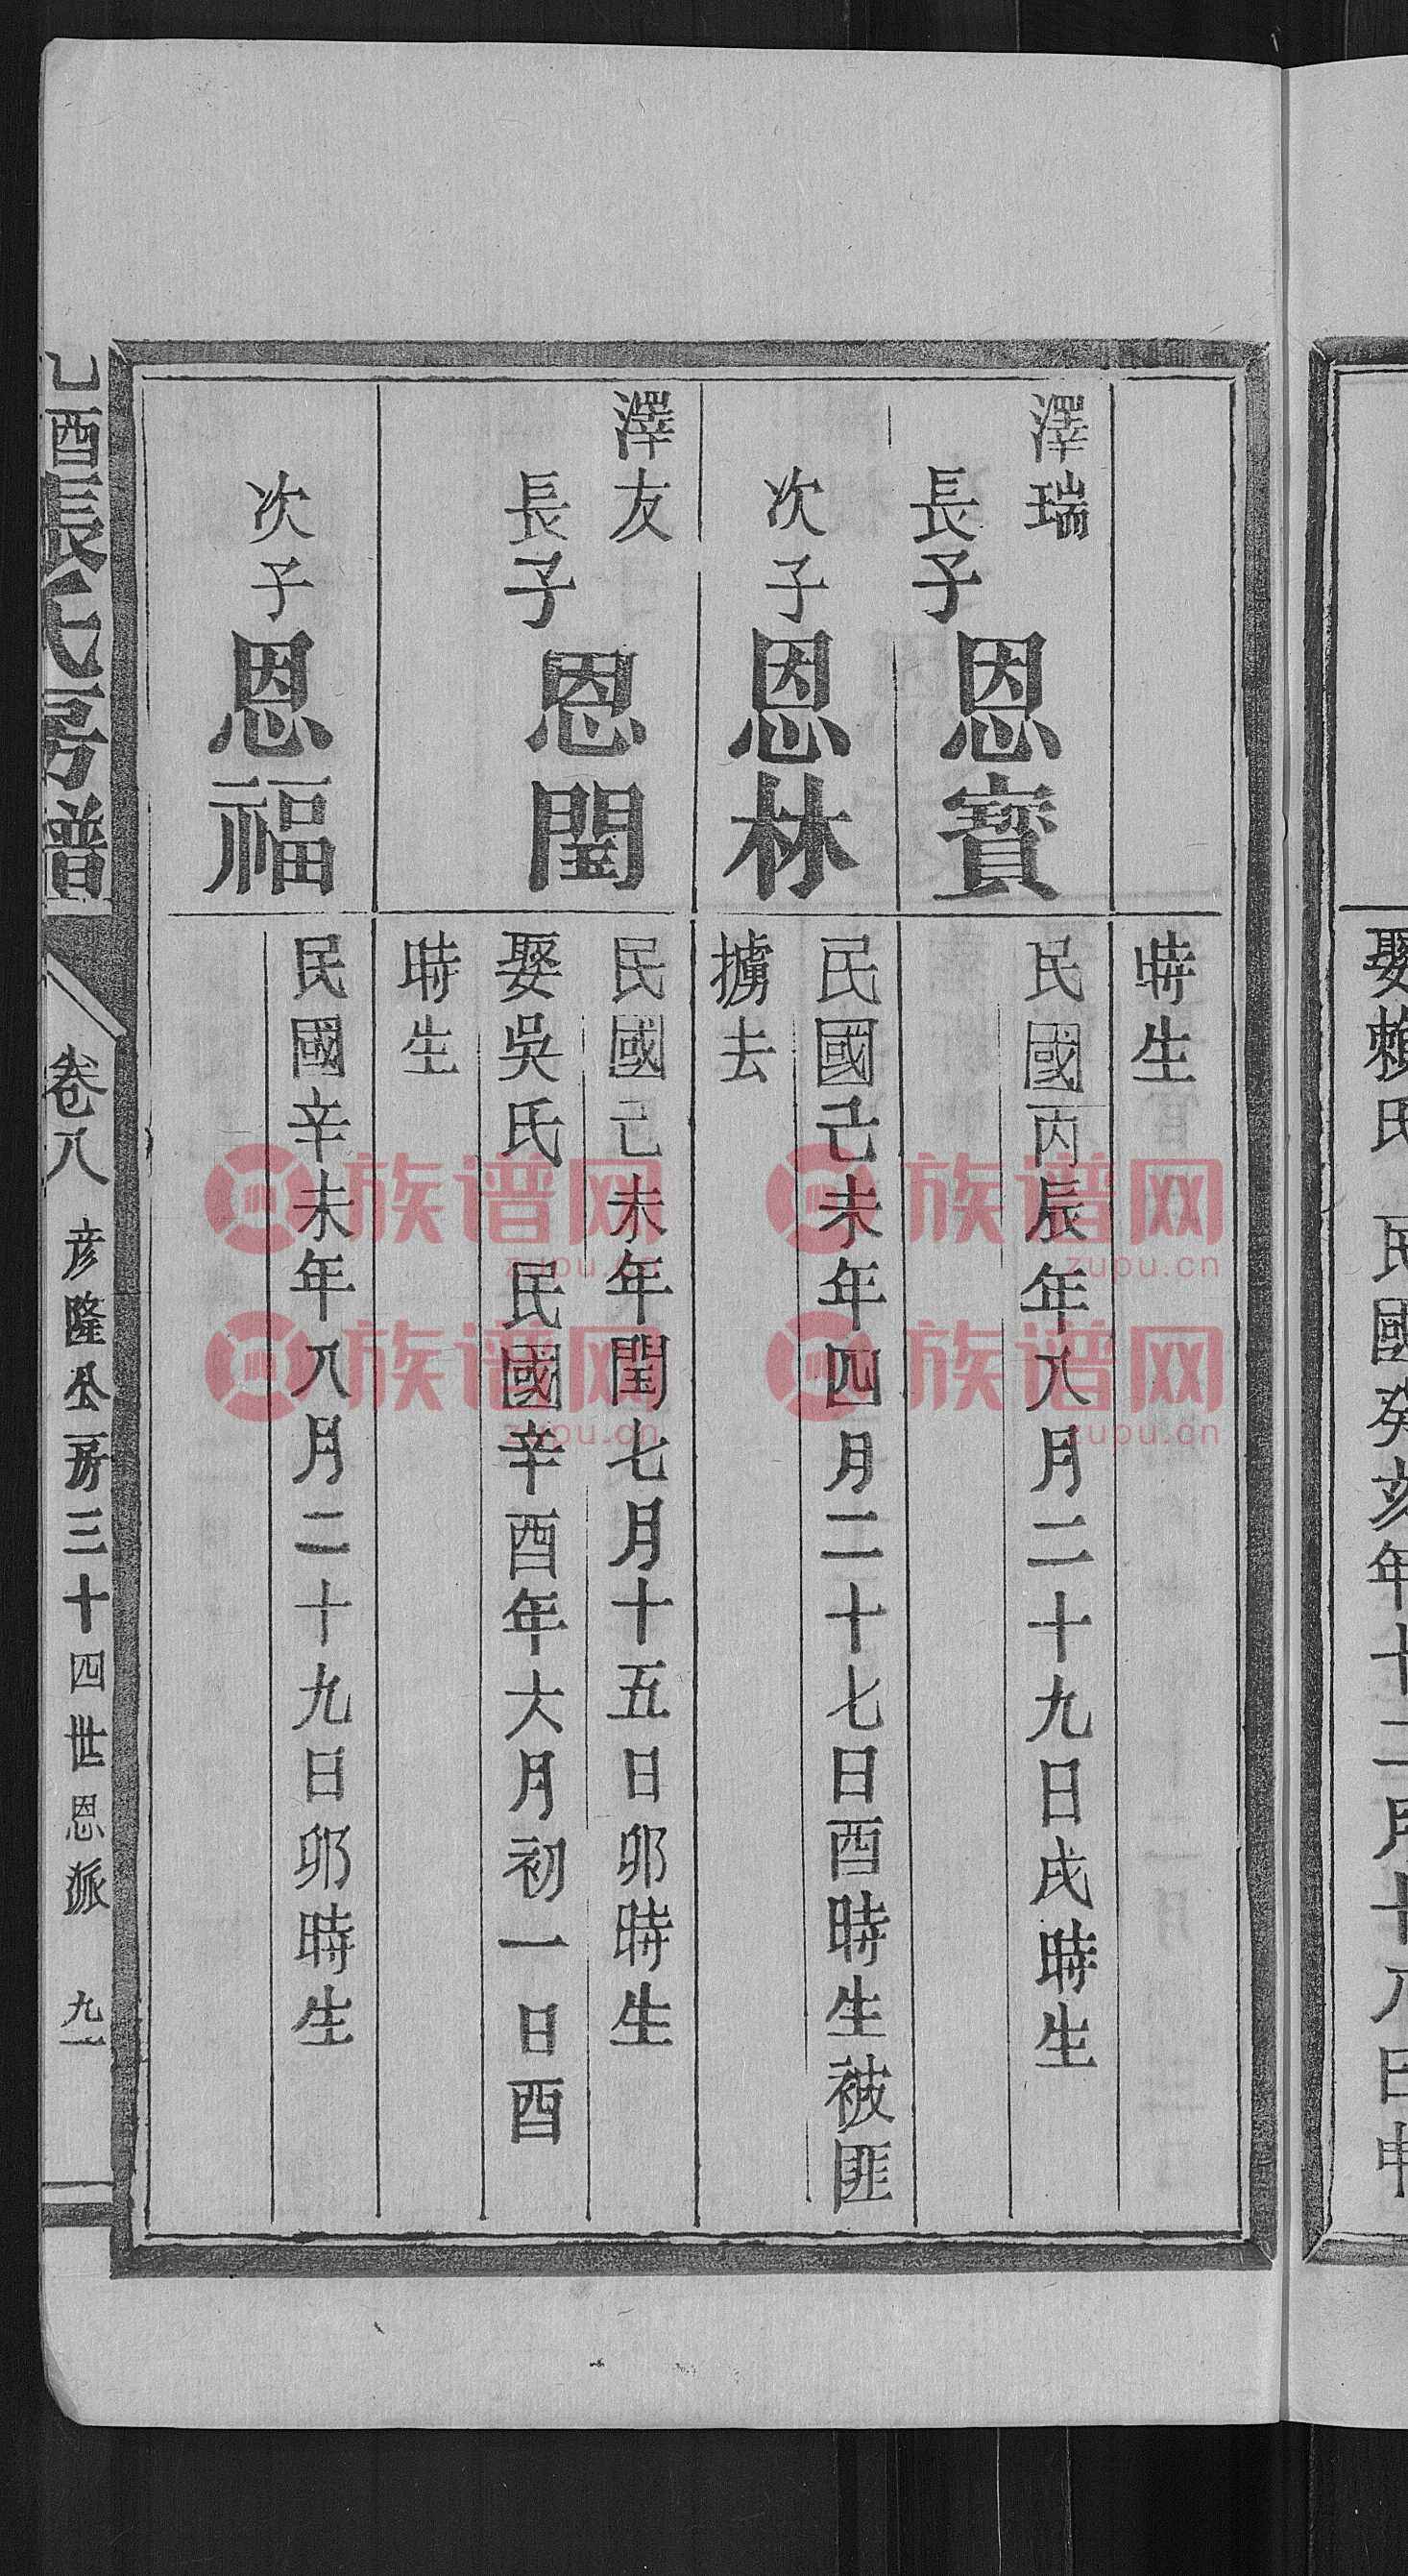 娶賴氏 民國癸亥年十二月十八日申
時生
澤瑞
長子
恩寳
民國丙辰年八月二十九日戌時生
次子
恩林
民國己未年四月二十七日酉時生被匪
擄去
澤友
長子
恩閏
民國己未年閏七月十五日卯時生
娶吳氏 民國辛酉年六月初一日酉
時生
次子
恩福
民國辛未年八月二十九日卯時生
乙酉張氏房譜
卷八
彦隆公房三十四世恩派
九一
族谱网 族谱网
zupu.cn zupu.cn
族谱网 族谱网
zupu.cn zupu.cn